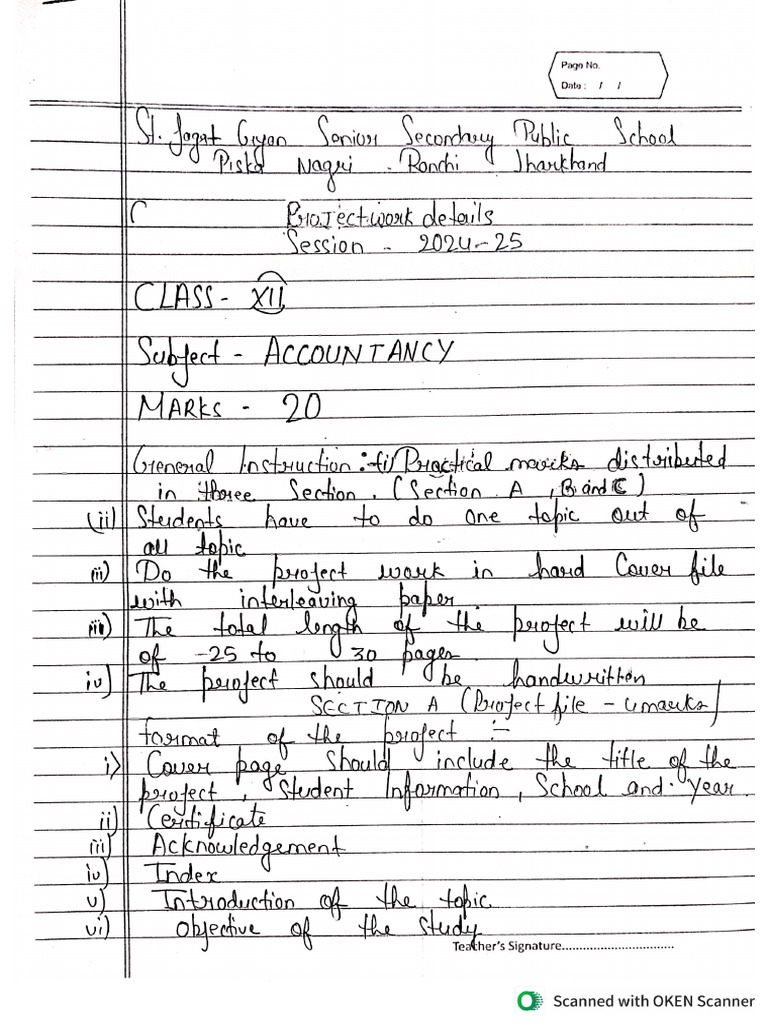 Page No.
Date : / /
St. Jagat Gyan Senior Secondary Public School
Piska Nagri - Ranchi Jharkhand
C Project work details
Session - 2024-25
CLASS - XII
Subject - ACCOUNTANCY
MARKS - 20
General Instruction :- (i) Practical marks distributed
in three Section . (Section A , B and C)
(ii) Students have to do one topic out of
all topic
(ii) Do the project work in hard Cover file
with interleaving paper
iii) The total length of the project will be
of -25 to 30 pages
iv) The project should be handwritten
SECTION A (Project file - 4 marks)
format of the project :-
i) Cover page should include the title of the
project , Student Information , School and Year
ii) Certificate
iii) Acknowledgement
iv) Index
v) Introduction of the topic
vi) Objective of the study
Teacher's Signature................................
Scanned with OKEN Scanner